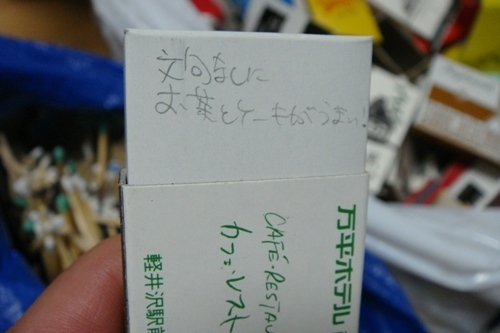 文句なしに
お茶とケーキがうまい!
万平ホテル
CAFÉ・RESTAU
カフェ・レスト
軽井沢駅前